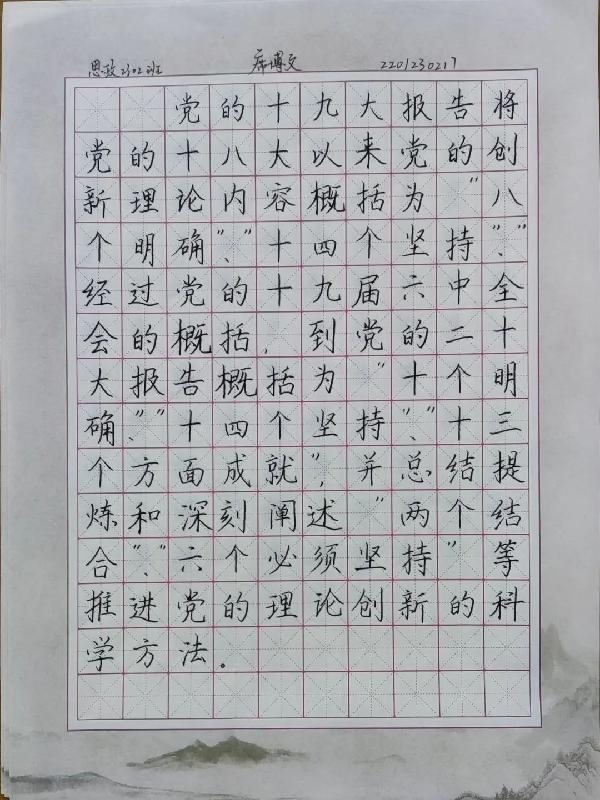 思政2302班 席博文 2201230217
党的十九大报告将
党的十八大以来党的创
新理论内容概括为“八
个明确”、“十四个坚持”、“
经过党的十九届六中全
会的概括，到党的二十
大报告概括为“十个明
确”、“十四个坚持”、“十三
个方面成就”，并总结提
炼和深刻阐述“两个结
合”、“六个必须坚持”等
推进党的理论创新的科
学方法。